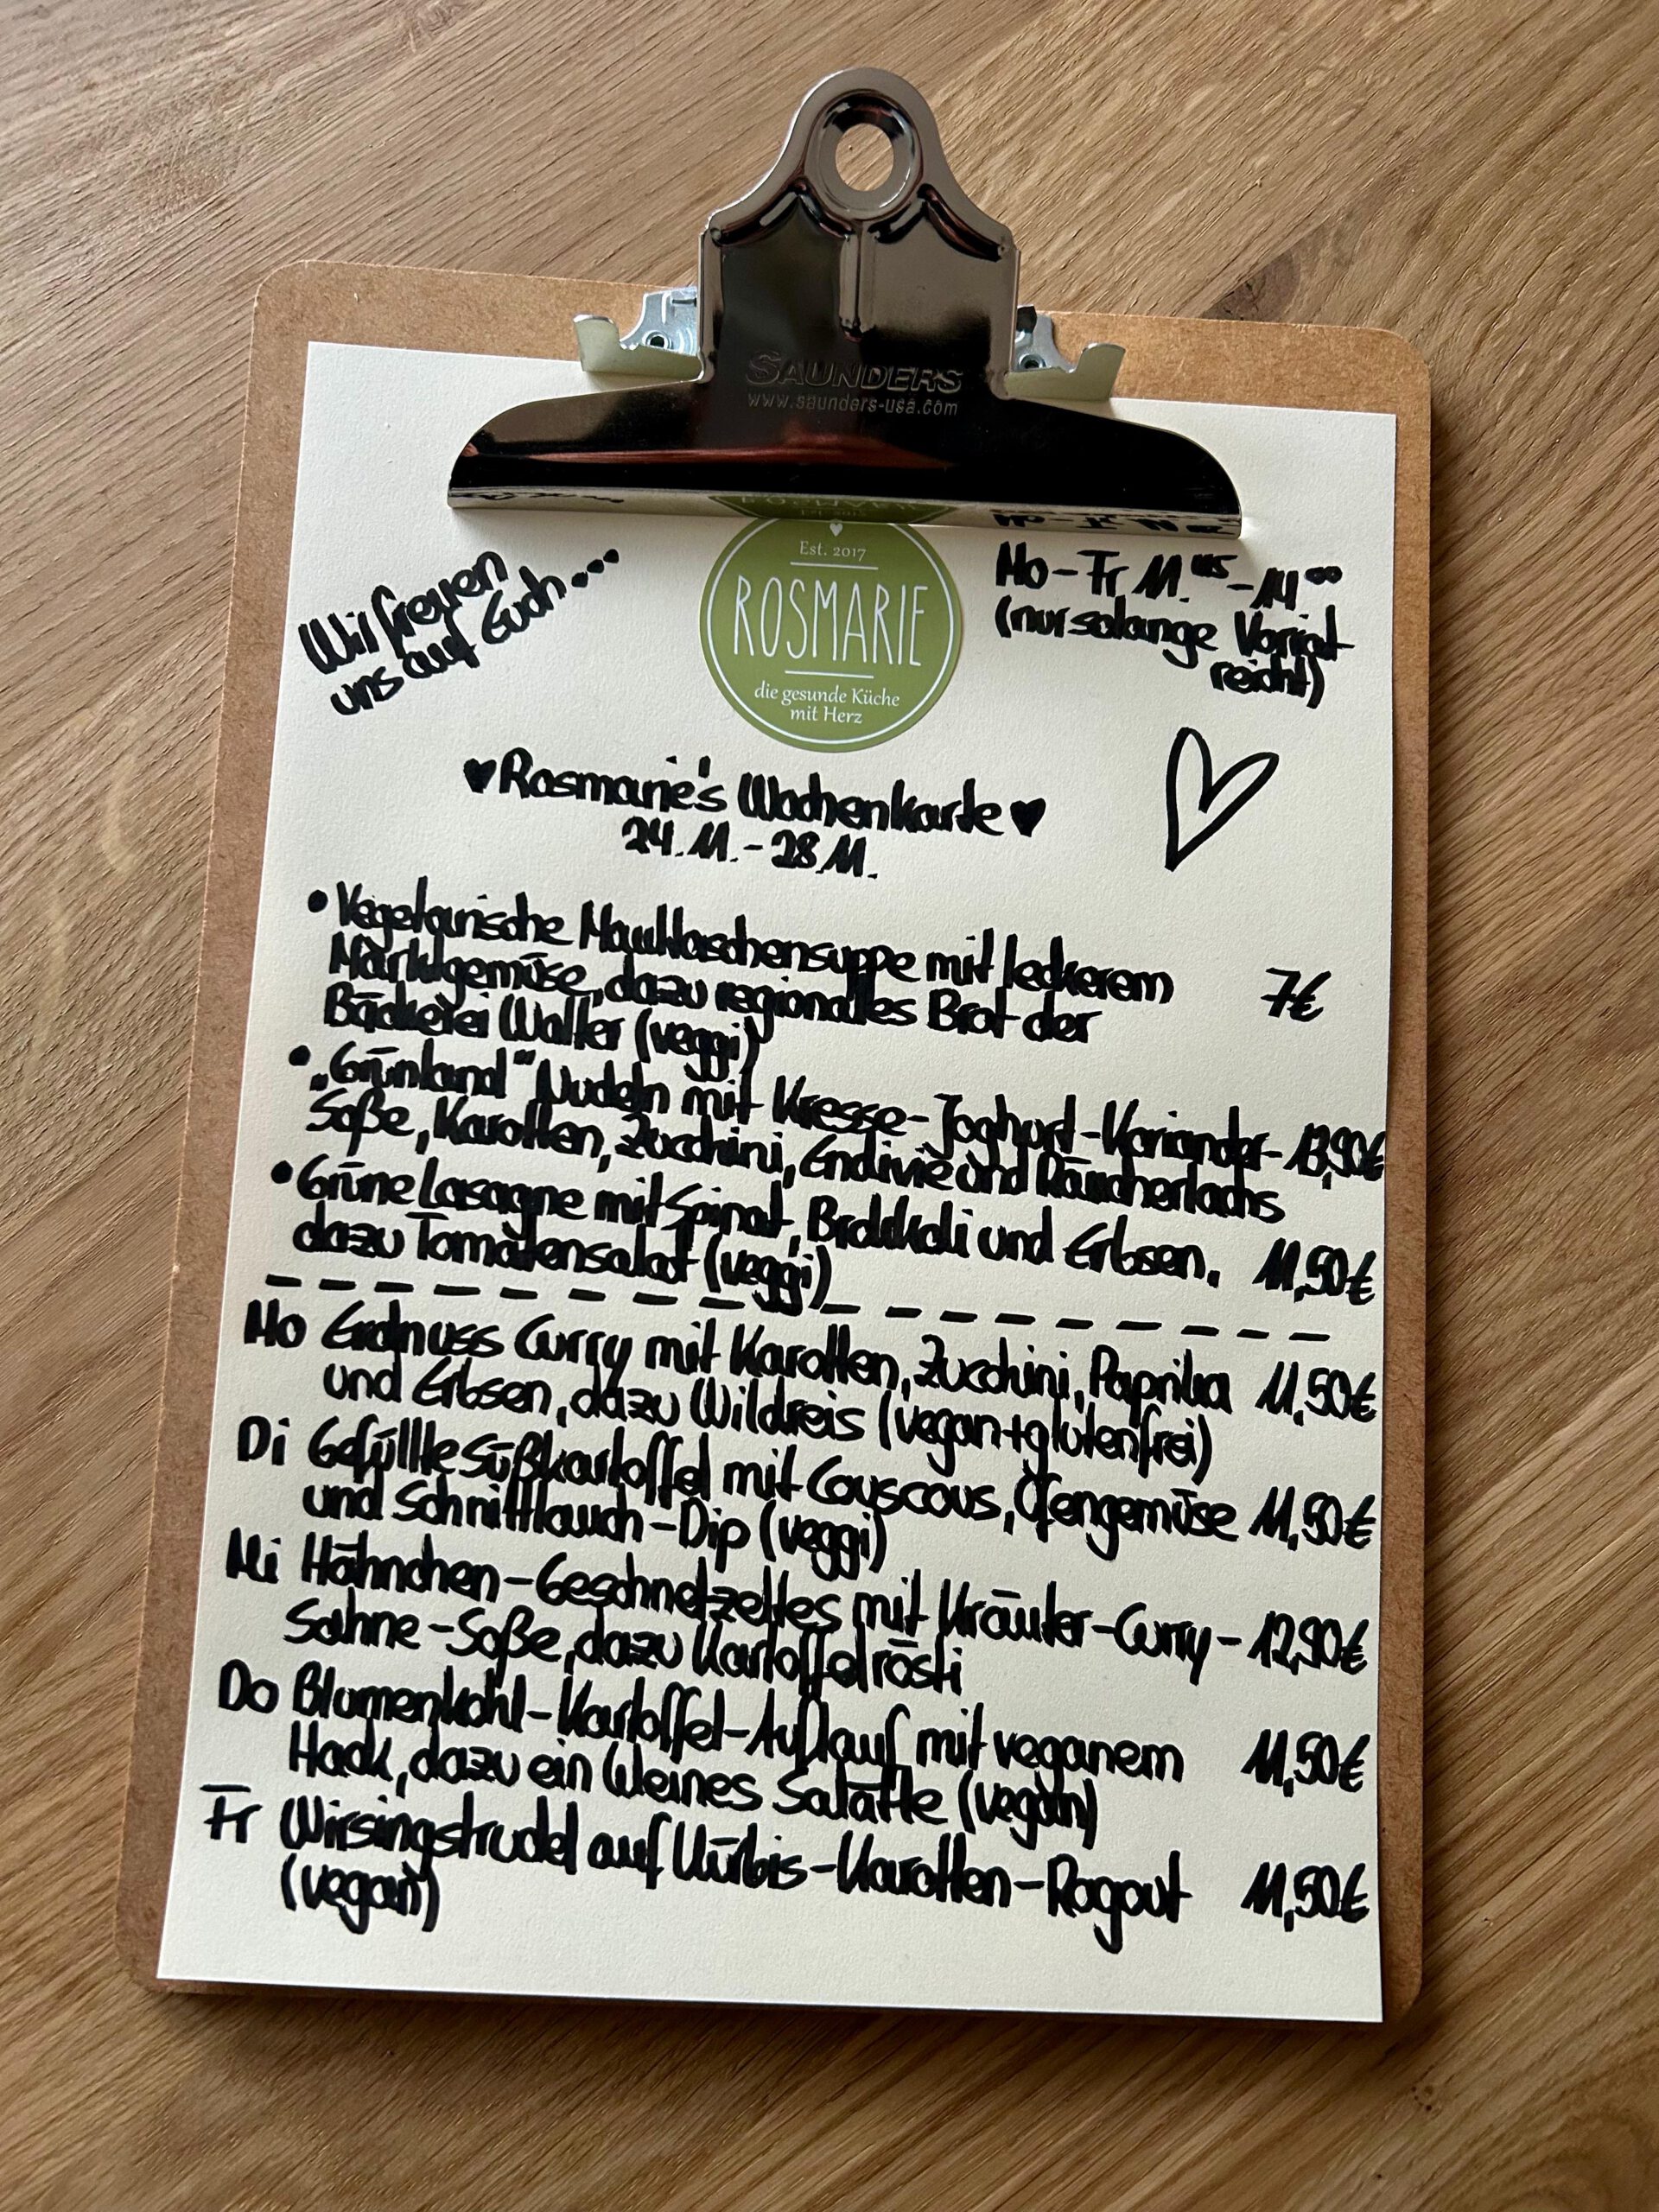 SAUNDERS
www.saunders-usa.com
Wir freuen
uns auf Euch...
Est. 2017
ROSMARIE
die gesunde Küche
mit Herz
Mo-Fr 11.45-14.00
(nur solange Vorrat
reicht)
♥Rosmarie's Wochenkarte♥
24.11.-28.11.
• Vegetarische Maultaschensuppe mit leckerem
Marktgemüse, dazu regionales Brot der 7€
Bäckerei Walter (veggi)
• „Grünland" Nudeln mit Kresse-Joghurt-Koriander- 13,90€
Soße, Karotten, Zucchini, Endivie und Räucherlachs
• Grüne Lasagne mit Spinat, Brokkoli und Erbsen, 11,50€
dazu Tomatensalat (veggi)
Mo Erdnuss Curry mit Karotten, Zucchini, Paprika 11,50€
und Erbsen, dazu Wildreis (vegan+glutenfrei)
Di Gefüllte Süßkartoffel mit Couscous, Ofengemüse 11,50€
und Schnittlauch-Dip (veggi)
Mi Hähnchen-Geschnetzeltes mit Kräuter-Curry- 12,90€
Sahne-Soße, dazu Kartoffelrösti
Do Blumenkohl-Kartoffel-Auflauf mit veganem 11,50€
Hack, dazu ein kleines Salätle (vegan)
Fr Wirsingstrudel auf Kürbis-Karotten-Ragout 11,50€
(vegan)